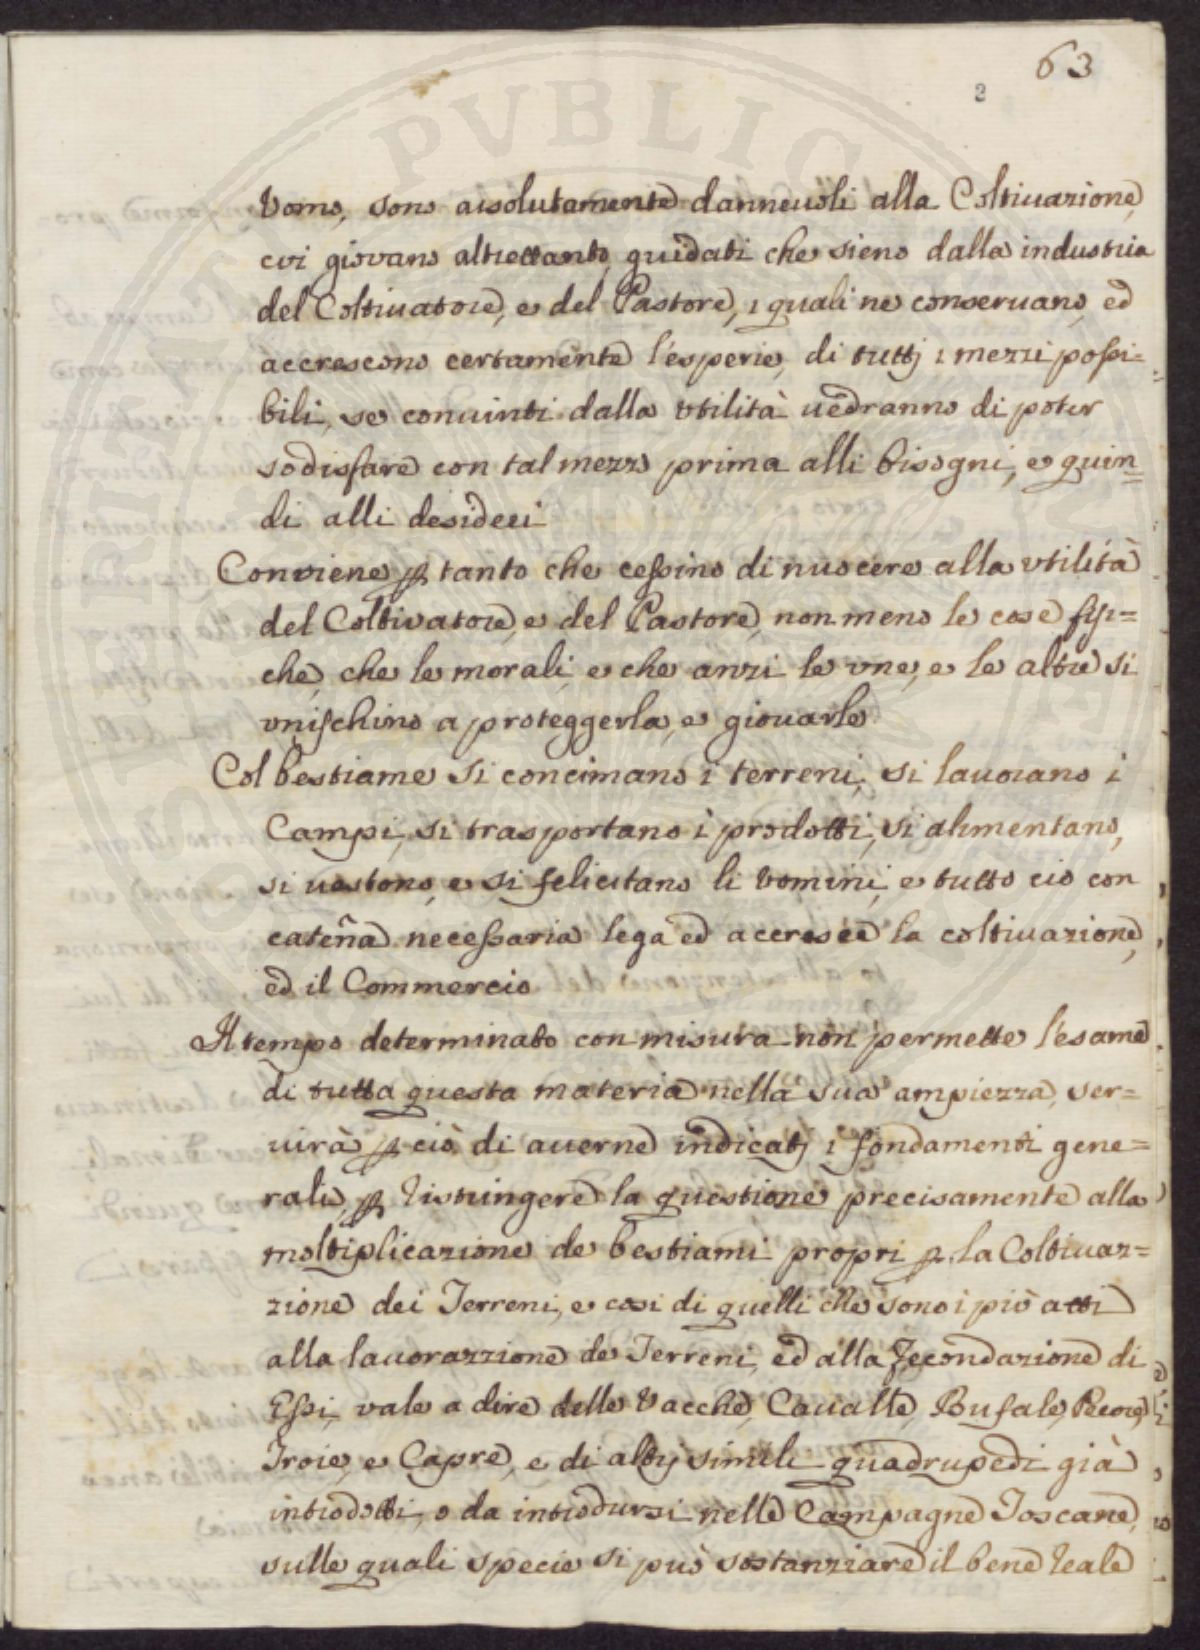 63
2
Vomo, sono assolutamente dannevoli alla Coltivazione,
cvi giovano altrettanto, guidati che sieno dalla industria
del Coltivatore, e del Pastore, i quali ne conservano, ed
accrescono certamente l'esperie, di tuttj i mezzi possi=
bili, se convinti dalla vtilità vedranno di poter
sodisfare con tal mezzo prima alli bisogni, e quin=
di alli desideri
Conviene ꝑ tanto che cessino di nuocere alla vtilità
del Coltivatore, e del Pastore, non meno le cose fisi=
che, che le morali, e che anzi le vne, e le altre si
vnischino a proteggerla, e giovarle
Col bestiame si concimano i terreni, si lavorano i
Campi, si trasportano i prodotti, si alimentano,
si vestono, e si felicitano li Vomini, e tutto cio con
cateña necessaria lega ed accresce la coltivazione,
ed il Commercio
Il tempo determinato con misura non permette l'esame
di tutta questa materia nella sua ampiezza, ser=
virà ꝑ ciò di averne indicatj i fondamenti gene=
rali, ꝑ ristringere la questione precisamente alla
moltiplicazione de bestiami propri ꝑ la Coltivaz=
zione dei Terreni, e così di quelli che sono i più atti
alla lavorazzione de Terreni, ed alla fecondazione di
Essi, vale a dire delle Vacche, Cavalle, Bufale, Pecore,
Troie, e Capre, e di altrj simili quadrupedi già
introdotti, o da introdursi nelle Campagne Toscane,
sulle quali specie si può sostanziare il bene reale